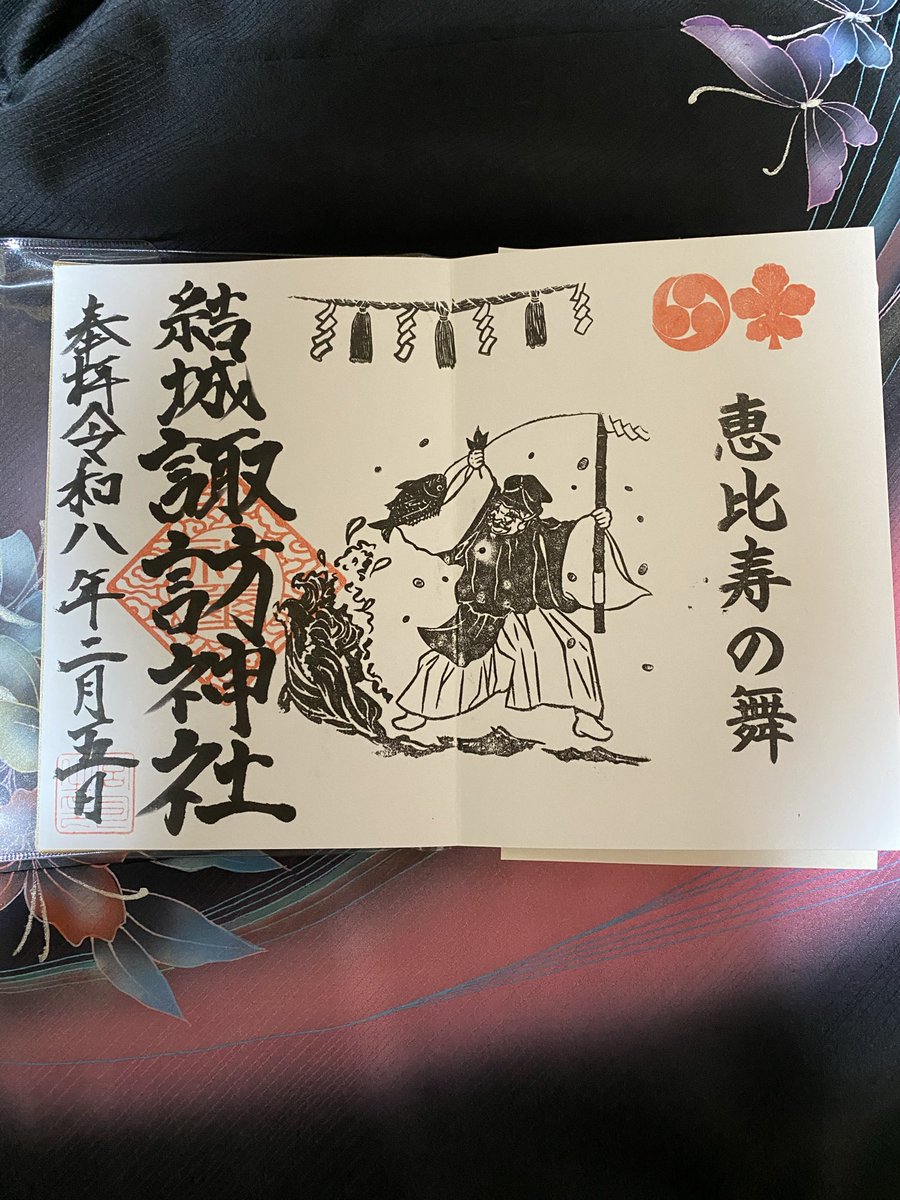 恵比寿の舞
結城諏訪神社
奉拝令和八年二月五日